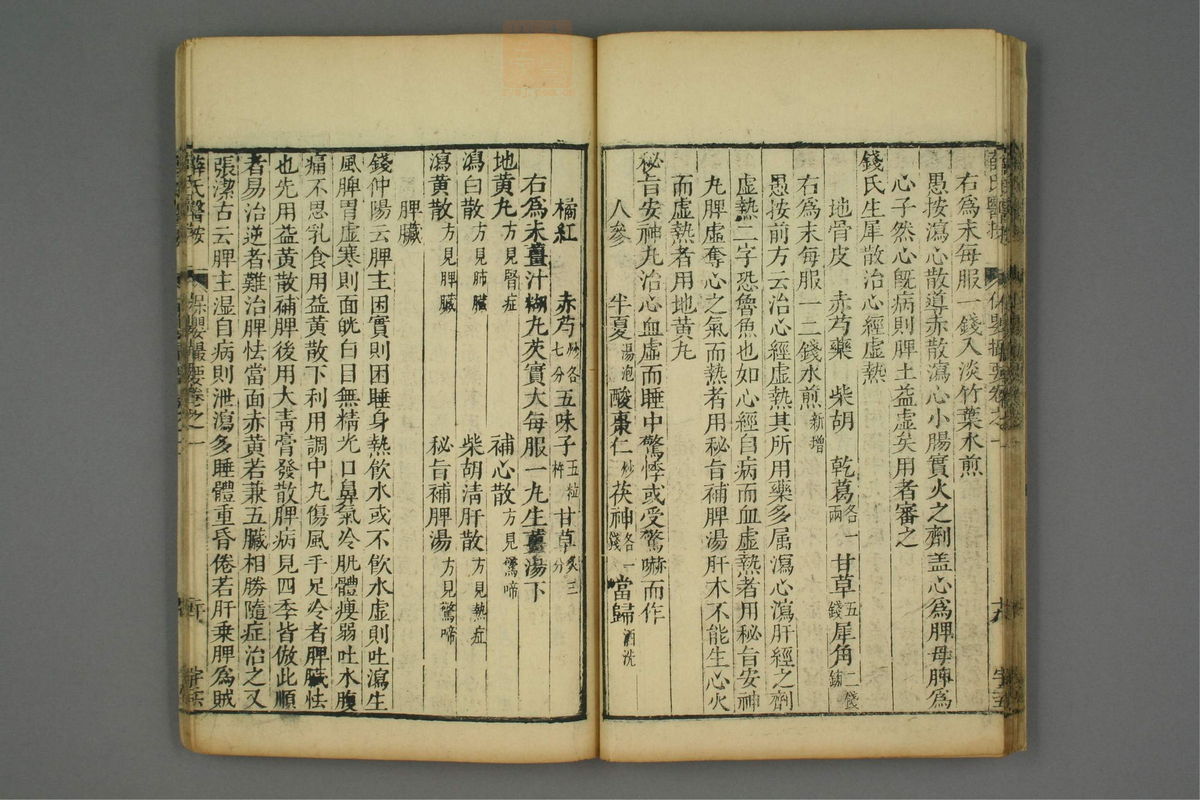 右爲末每服一錢入淡竹葉水煎
愚按瀉心散導赤散瀉心小腸實火之劑盖心爲脾母脾爲
心子然心旣病則脾土益虛矣用者審之
錢氏生犀散治心經虛熱
地骨皮 赤芍藥 柴胡 乾葛各一兩 甘草五錢 犀角二錢鎊
右爲末每服一二錢水煎新增
愚按前方云治心經虛熱其所用藥多属瀉心瀉肝經之劑
虛熱二字恐魯魚也如心經自病而血虛熱者用秘旨安神
丸脾虛奪心之氣而熱者用秘旨補脾湯肝木不能生心火
而虛熱者用地黄丸
秘旨安神丸治心血虛而睡中驚悸或受驚嚇而作
人參 半夏湯泡 酸棗仁炒 茯神各一錢 當歸酒洗
橘紅 赤芍炒各七分 五味子五粒杵 甘草炙三分
右爲末薑汁糊丸芡實大每服一丸生薑湯下
地黄丸方見腎症 補心散方見驚啼
瀉白散方見肺臟 柴胡清肝散方見熱症
瀉黄散方見脾臟 秘旨補脾湯方見驚啼
脾臟
錢仲陽云脾主困實則困睡身熱飲水或不飲水虛則吐瀉生
風脾胃虛寒則面㿠白目無精光口鼻氣冷肌體瘦弱吐水腹
痛不思乳食用益黄散下利用調中丸傷風手足冷者脾臟怯
也先用益黄散補脾後用大青膏發散脾病見四季皆倣此順
者易治逆者難治脾怯當面赤黄若兼五臟相勝隨症治之又
張潔古云脾主湿自病則泄瀉多睡體重昏倦若肝乗脾爲賊
薛氏醫按 保嬰撮要卷之一